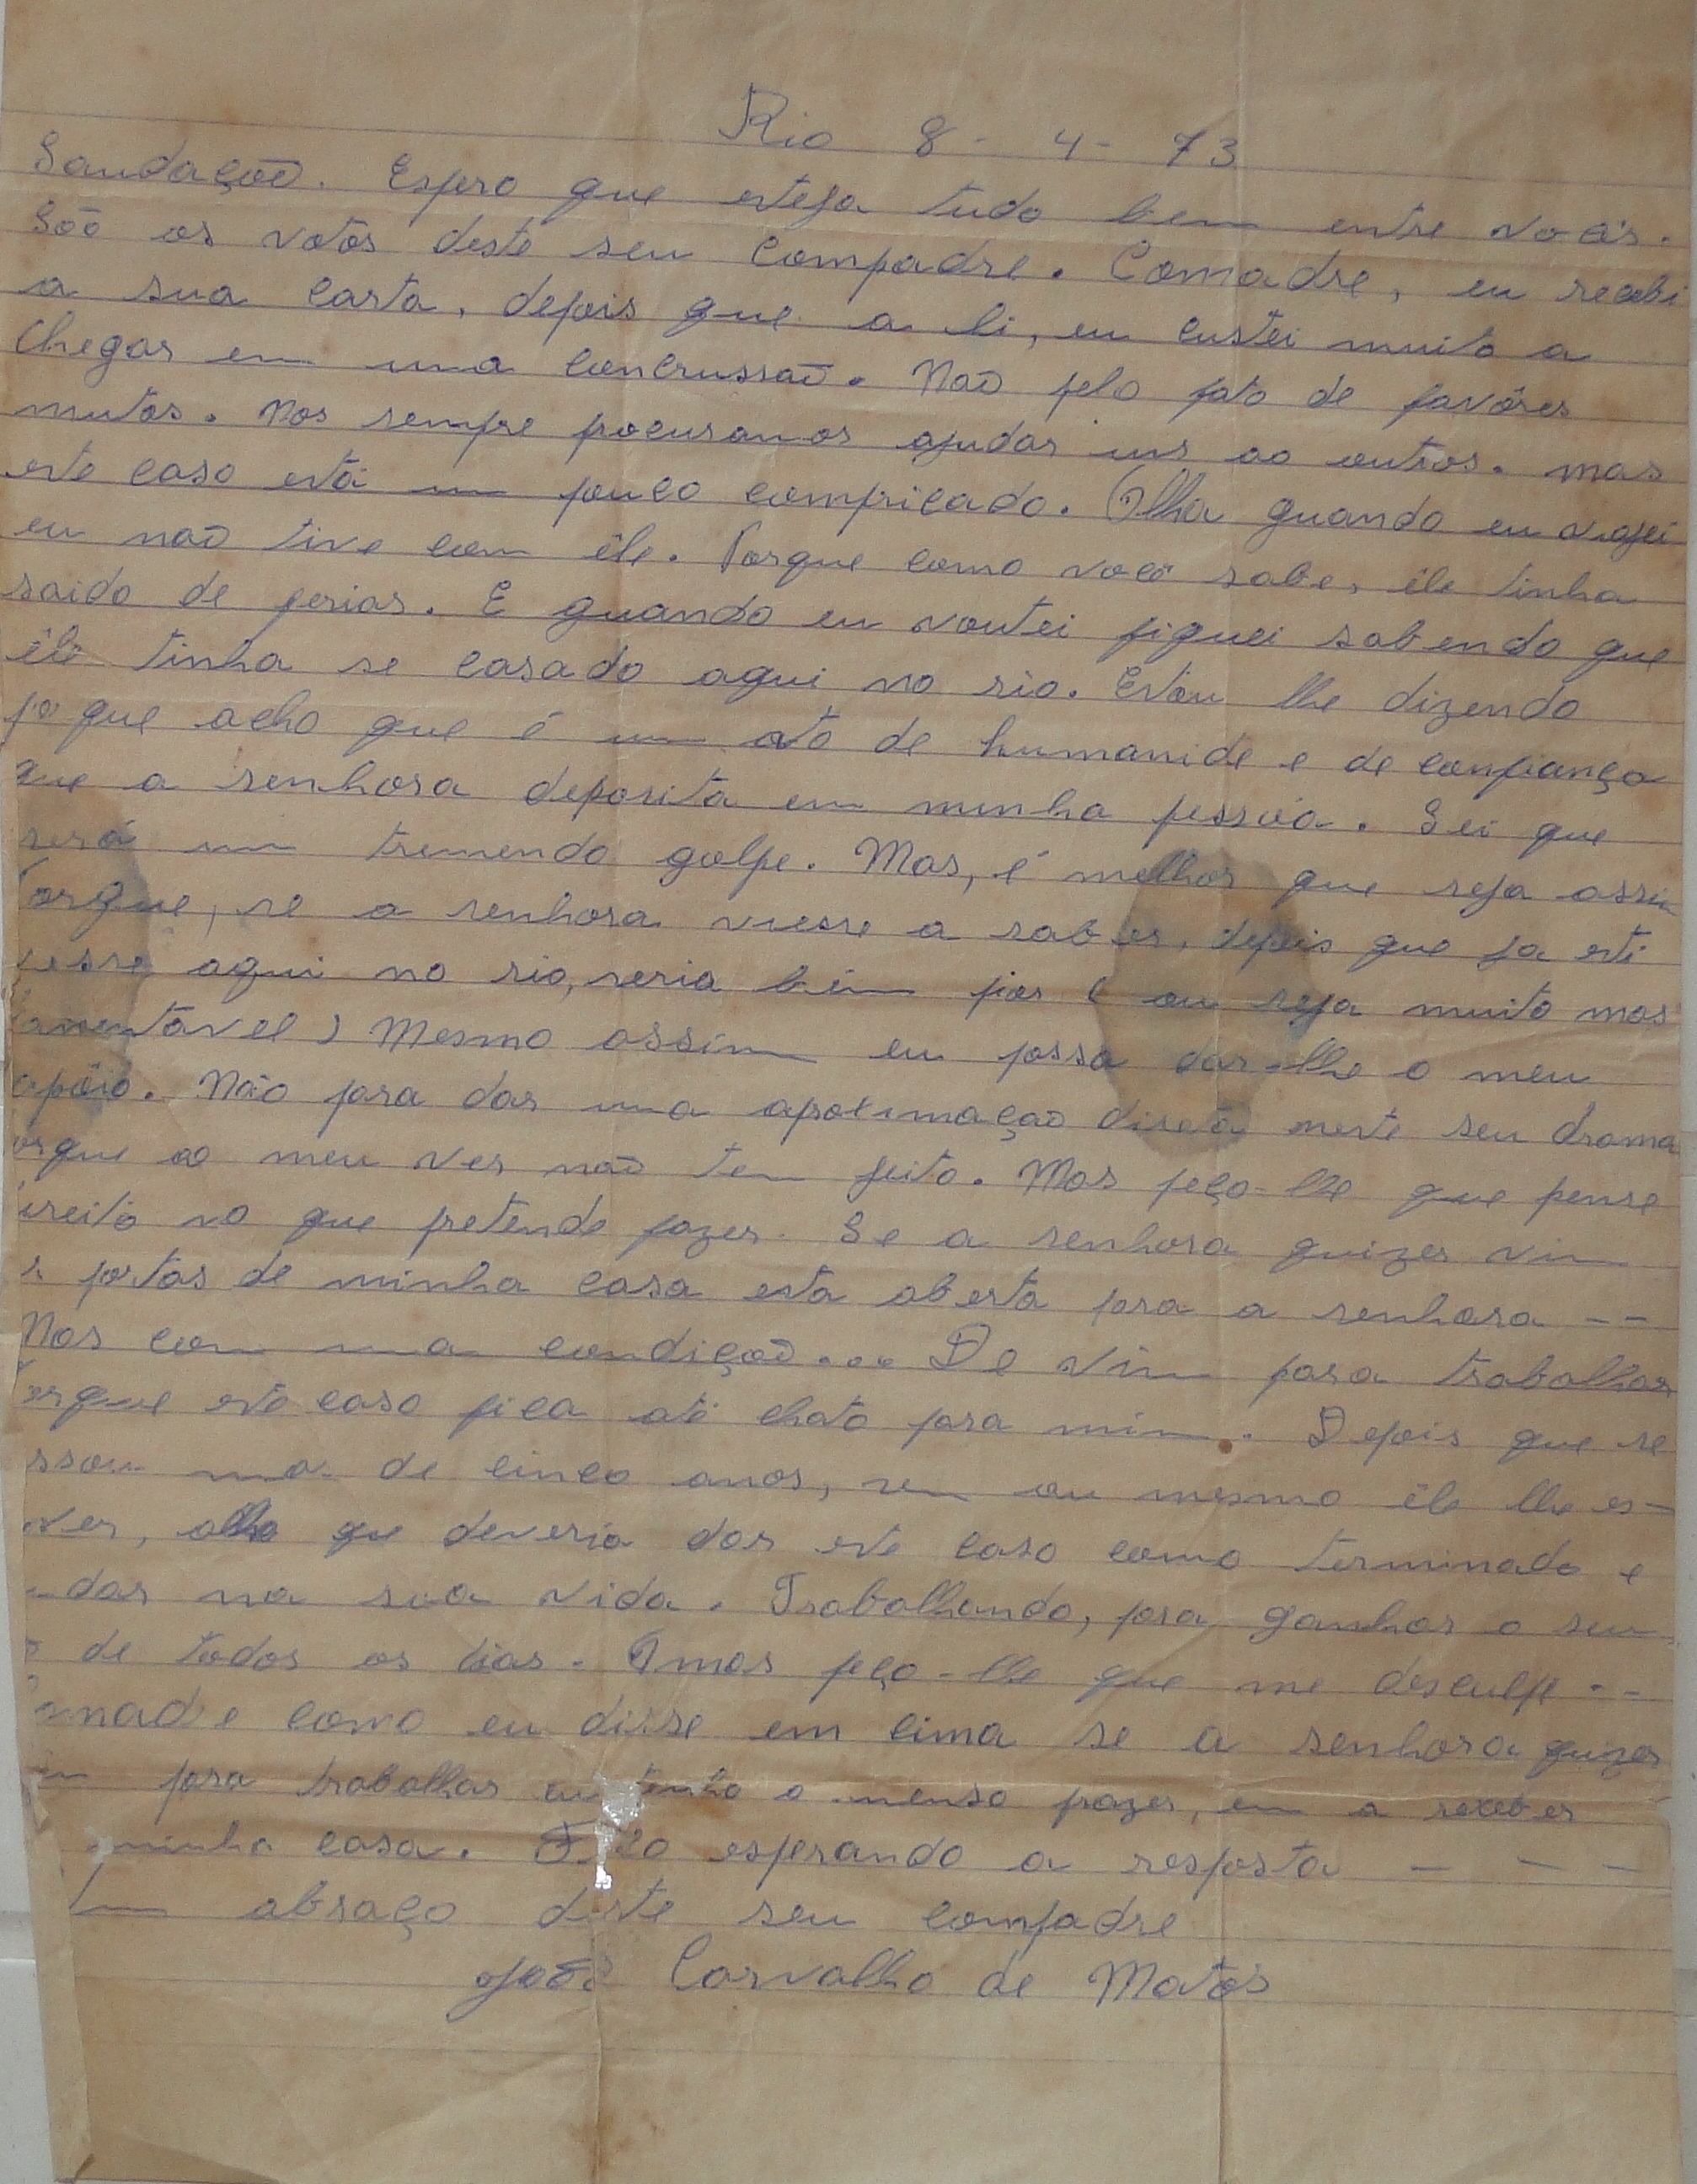 Rio 8 - 4 - 73
Saudação. Espero que esteja tudo bem entre vocês.
São os votos deste seu Compadre. Comadre, eu recebi
a sua carta, depois que a li, eu custei muito a
Chegar em uma concrussão. Não pelo fato de favôres
mutos. Nos sempre procuramos ajudar uns ao outros. mas
este caso está um pouco compricado. Olha quando eu viajei
eu não tive com êle. Porque como você sabe, êle tinha
saido de ferias. E quando eu voutei fiquei sabendo que
êle tinha se casado aqui no rio. Estou lhe dizendo
porque acho que é um ato de humanide e de confiança
que a senhora deposita em minha pessôa. Sei que
será um tremendo golpe. Mas, é melhor que seja assim
Porque, se a senhora viesse a saber, depois que ja esti
vesse aqui no rio, seria bem pior ( ou seja muito mas
lamentavel ) Mesmo assim eu possa dar-lhe o meu
apôio. Não para dar uma aproximação direta mente seu drama
orque ao meu ver não tem jeito. Mas peço-lhe que pense
ireito no que pretende fazer. Se a senhora quizer vim
s portas de minha casa esta aberta para a senhora --
Mas com uma condição... De vim para trabalhar
orque este caso fica até chato para mim. Depois que se
ssou mas de cinco anos, sem ou mesmo êle lhe es-
ver, acho que deveria dar este caso como terminado e
dar na sua vida. Trabalhando, para ganhar o seu
de todos os dias. mas peço-lhe que me desculpe --
omadre como eu disse em cima se a senhora quizer
im para trabalhar eu tenho o imenso prazer, em a receber
minha casa. Fico esperando a resposta - - -
Um abraço deste seu compadre
João Carvalho de Matos